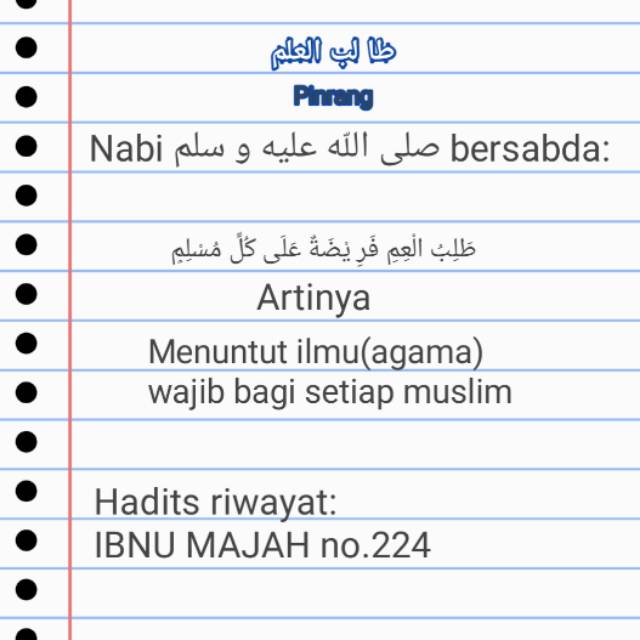 طا لب العلم
Pinrang
Nabi صلى الله عليه و سلم bersabda:
طَلِبُ الْعِمِ فَرِ يْضَةٌ عَلَى كُلِّ مُسْلِمٍ
Artinya
Menuntut ilmu(agama)
wajib bagi setiap muslim
Hadits riwayat:
IBNU MAJAH no.224